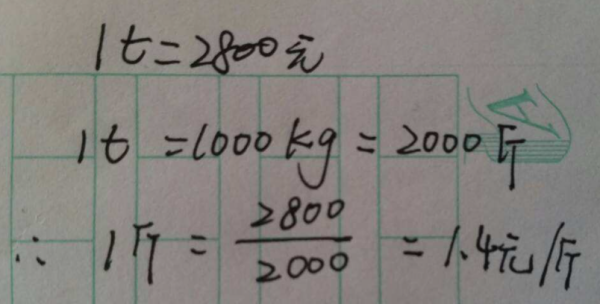 1t=2800元
1t=1000kg=2000斤
∴ 1斤=2800/2000=1.4元/斤